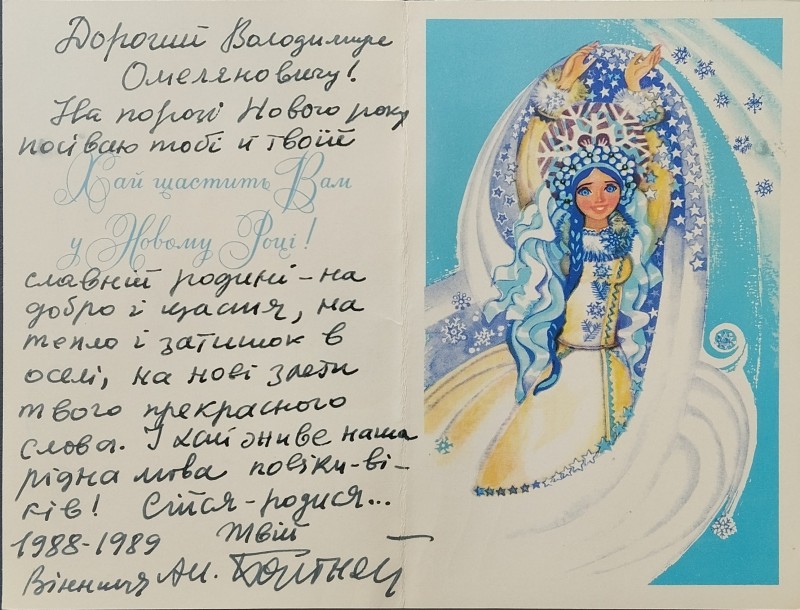 Дорогий Володимире
Омеляновичу!
На порозі Нового року
посіваю тобі й твоїй
Хай щастить Вам
у Новому Році!
славній родині – на
добро і щастя, на
тепло і затишок в
оселі, на нові злети
твого прекрасного
слова. І хай живе наша
рідна мова повіки-ві-
ків! Сійся-родися...
1988-1989 Твій
Вінниця Ан. Бортняк